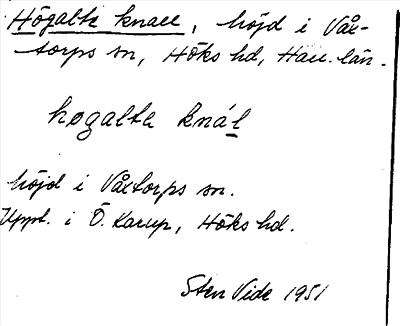 Högalta knall, höjd i Våx-
torps sn, Höks hd, Hall. län.
høgalta knál
höjd i Våxtorps sn.
Uppt. i Ö. Karup, Höks hd.
Sten Vide 1951